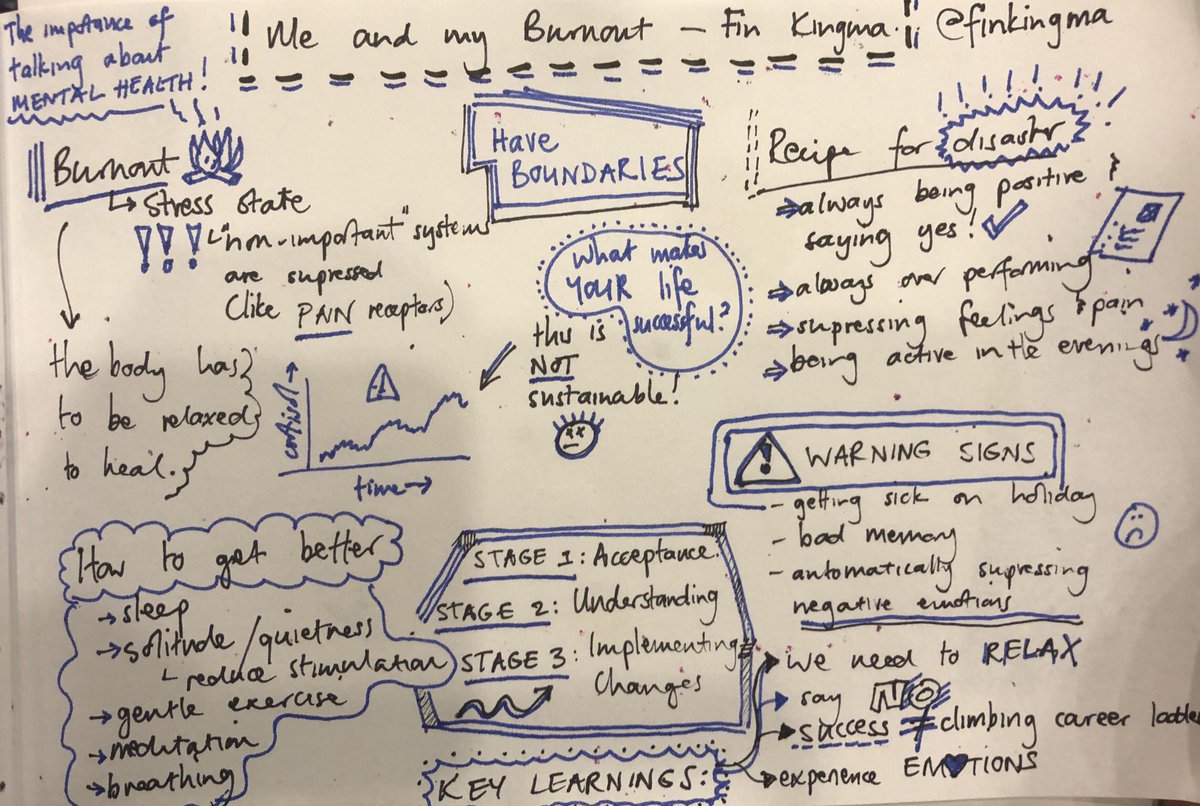 The importance of
talking about
MENTAL HEALTH!
Me and my Burnout - Fin Kingma
@finkingma
Burnout
↳ Stress state
!!! ↳ "non-important" systems
are supressed
(like PAIN receptors)
the body has
to be relaxed
to heal.
cortisol →
time →
Have
BOUNDARIES
What makes
YOUR life
successful?
this is
NOT
sustainable!
Recipe for disaster
⇒ always being positive &
saying yes!
⇒ always over performing
⇒ supressing feelings & pain
⇒ being active in the evenings
WARNING SIGNS
- getting sick on holiday
- bad memory
- automatically supressing
negative emotions
How to get better
→ sleep
→ solitude/quietness
↳ reduce stimulation
→ gentle exercise
→ meditation
→ breathing
STAGE 1: Acceptance
STAGE 2: Understanding
STAGE 3: Implementing
Changes
KEY LEARNINGS:
→ we need to RELAX
→ say NO
→ success ≠ climbing career ladder
→ experience EMOTIONS